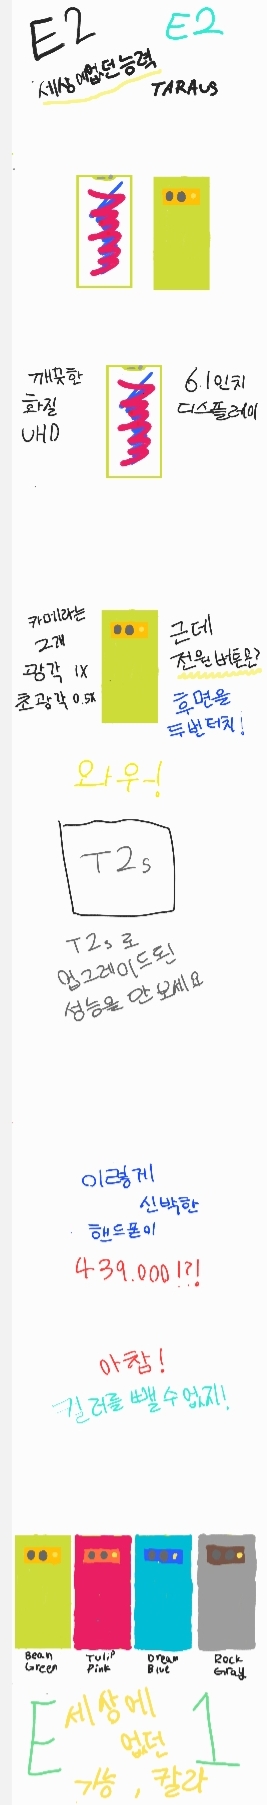 E2
E2
세상에없던능력
TARAUS
깨끗한
화질
UHD
6.1인치
디스플레이
카메라는
2개
광각 1X
초광각 0.5X
근데
전원버튼은?
후면을
두번터치!
와우~!
T2s
T2s로
업그레이드된
성능을 만보세요
이렇게
신박한
핸드폰이
439.000!?!
아참!
컬러를 뺄수없지!
Bean
Green
Tulip
Pink
Dream
Blue
Rock
Gray
E1
세상에
없던
기능, 칼라